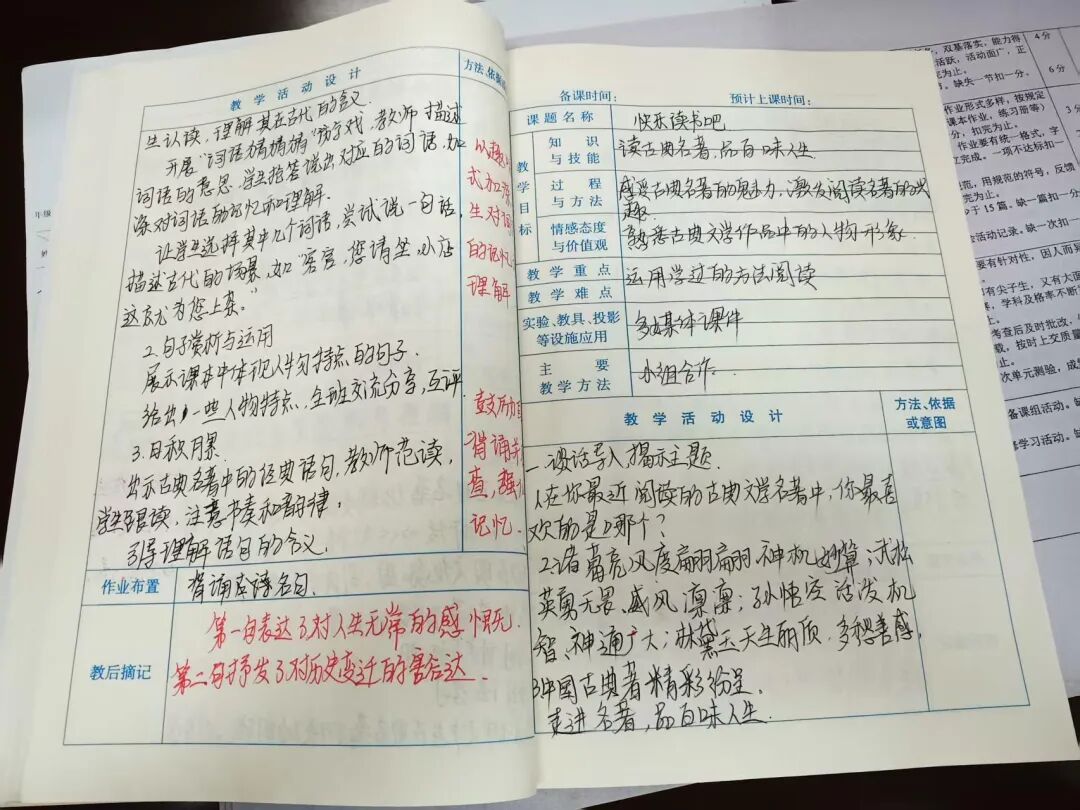 教学活动设计
方法、依据
生认读，理解其在古代的含义.
开展“词语猜猜猜”游戏，教师描述
词语的意思，学生抢答说出对应的词语，加
深对词语的记忆和理解.
让学生选择其中几个词语，尝试说一句话，
描述古代的场景，如“客官，您请坐，小店
这就为您上菜。”
2.句子赏析与运用
展示课本中体现人物特点的句子.
给出一些人物特点，全班交流分享，互评.
3.日积月累
出示古典名著中的经典语句，教师范读，
学生跟读，注意节奏和韵律，
引导理解语句的含义.
以趣
式加深
生对词
的记忆
理解
鼓励
背诵并
查，强化
记忆.
作业布置
背诵本课名句.
教后摘记
第一句表达了对人生无常的感慨.
第二句抒发了对历史变迁的豁达.
备课时间：
预计上课时间：
课题名称
快乐读书吧
教学目标
知识与技能
读古典名著，品百味人生.
过程与方法
感受古典名著的魅力，激发阅读名著的兴
趣.
情感态度与价值观
熟悉古典文学作品中的人物形象.
教学重点
运用学过的方法阅读
教学难点
实验、教具、投影等设施应用
多媒体课件
主要教学方法
小组合作.
教学活动设计
方法、依据或意图
一.谈话导入，揭示主题.
1.在你最近阅读的古典文学名著中，你最喜
欢的是哪个？
2.诸葛亮风度翩翩、神机妙算；武松
英勇无畏、威风凛凛；孙悟空活泼机
智、神通广大；林黛玉天生丽质，多愁善感，
3.中国古典名著精彩纷呈.
走进名著，品百味人生.
双基落实，能力得
活跃，活动面广，正
4分
完为止。
缺失一节扣一分，
6分
作业形式多样，按规定
课本作业，练习册等）
3分
，扣完为止。
作业要有统一格式，字
立完成。一项不达标扣一
规范，用规范的符号，反馈
为止。
少于15篇。缺一篇扣一分
活动记录。缺一次扣一
要有针对性，因人而异
有尖子生，又有大面
，学科及格率不断
考查后及时批改，
载，按时上交质量
次单元测验，成
备课组活动。缺
修学习活动。缺
年级